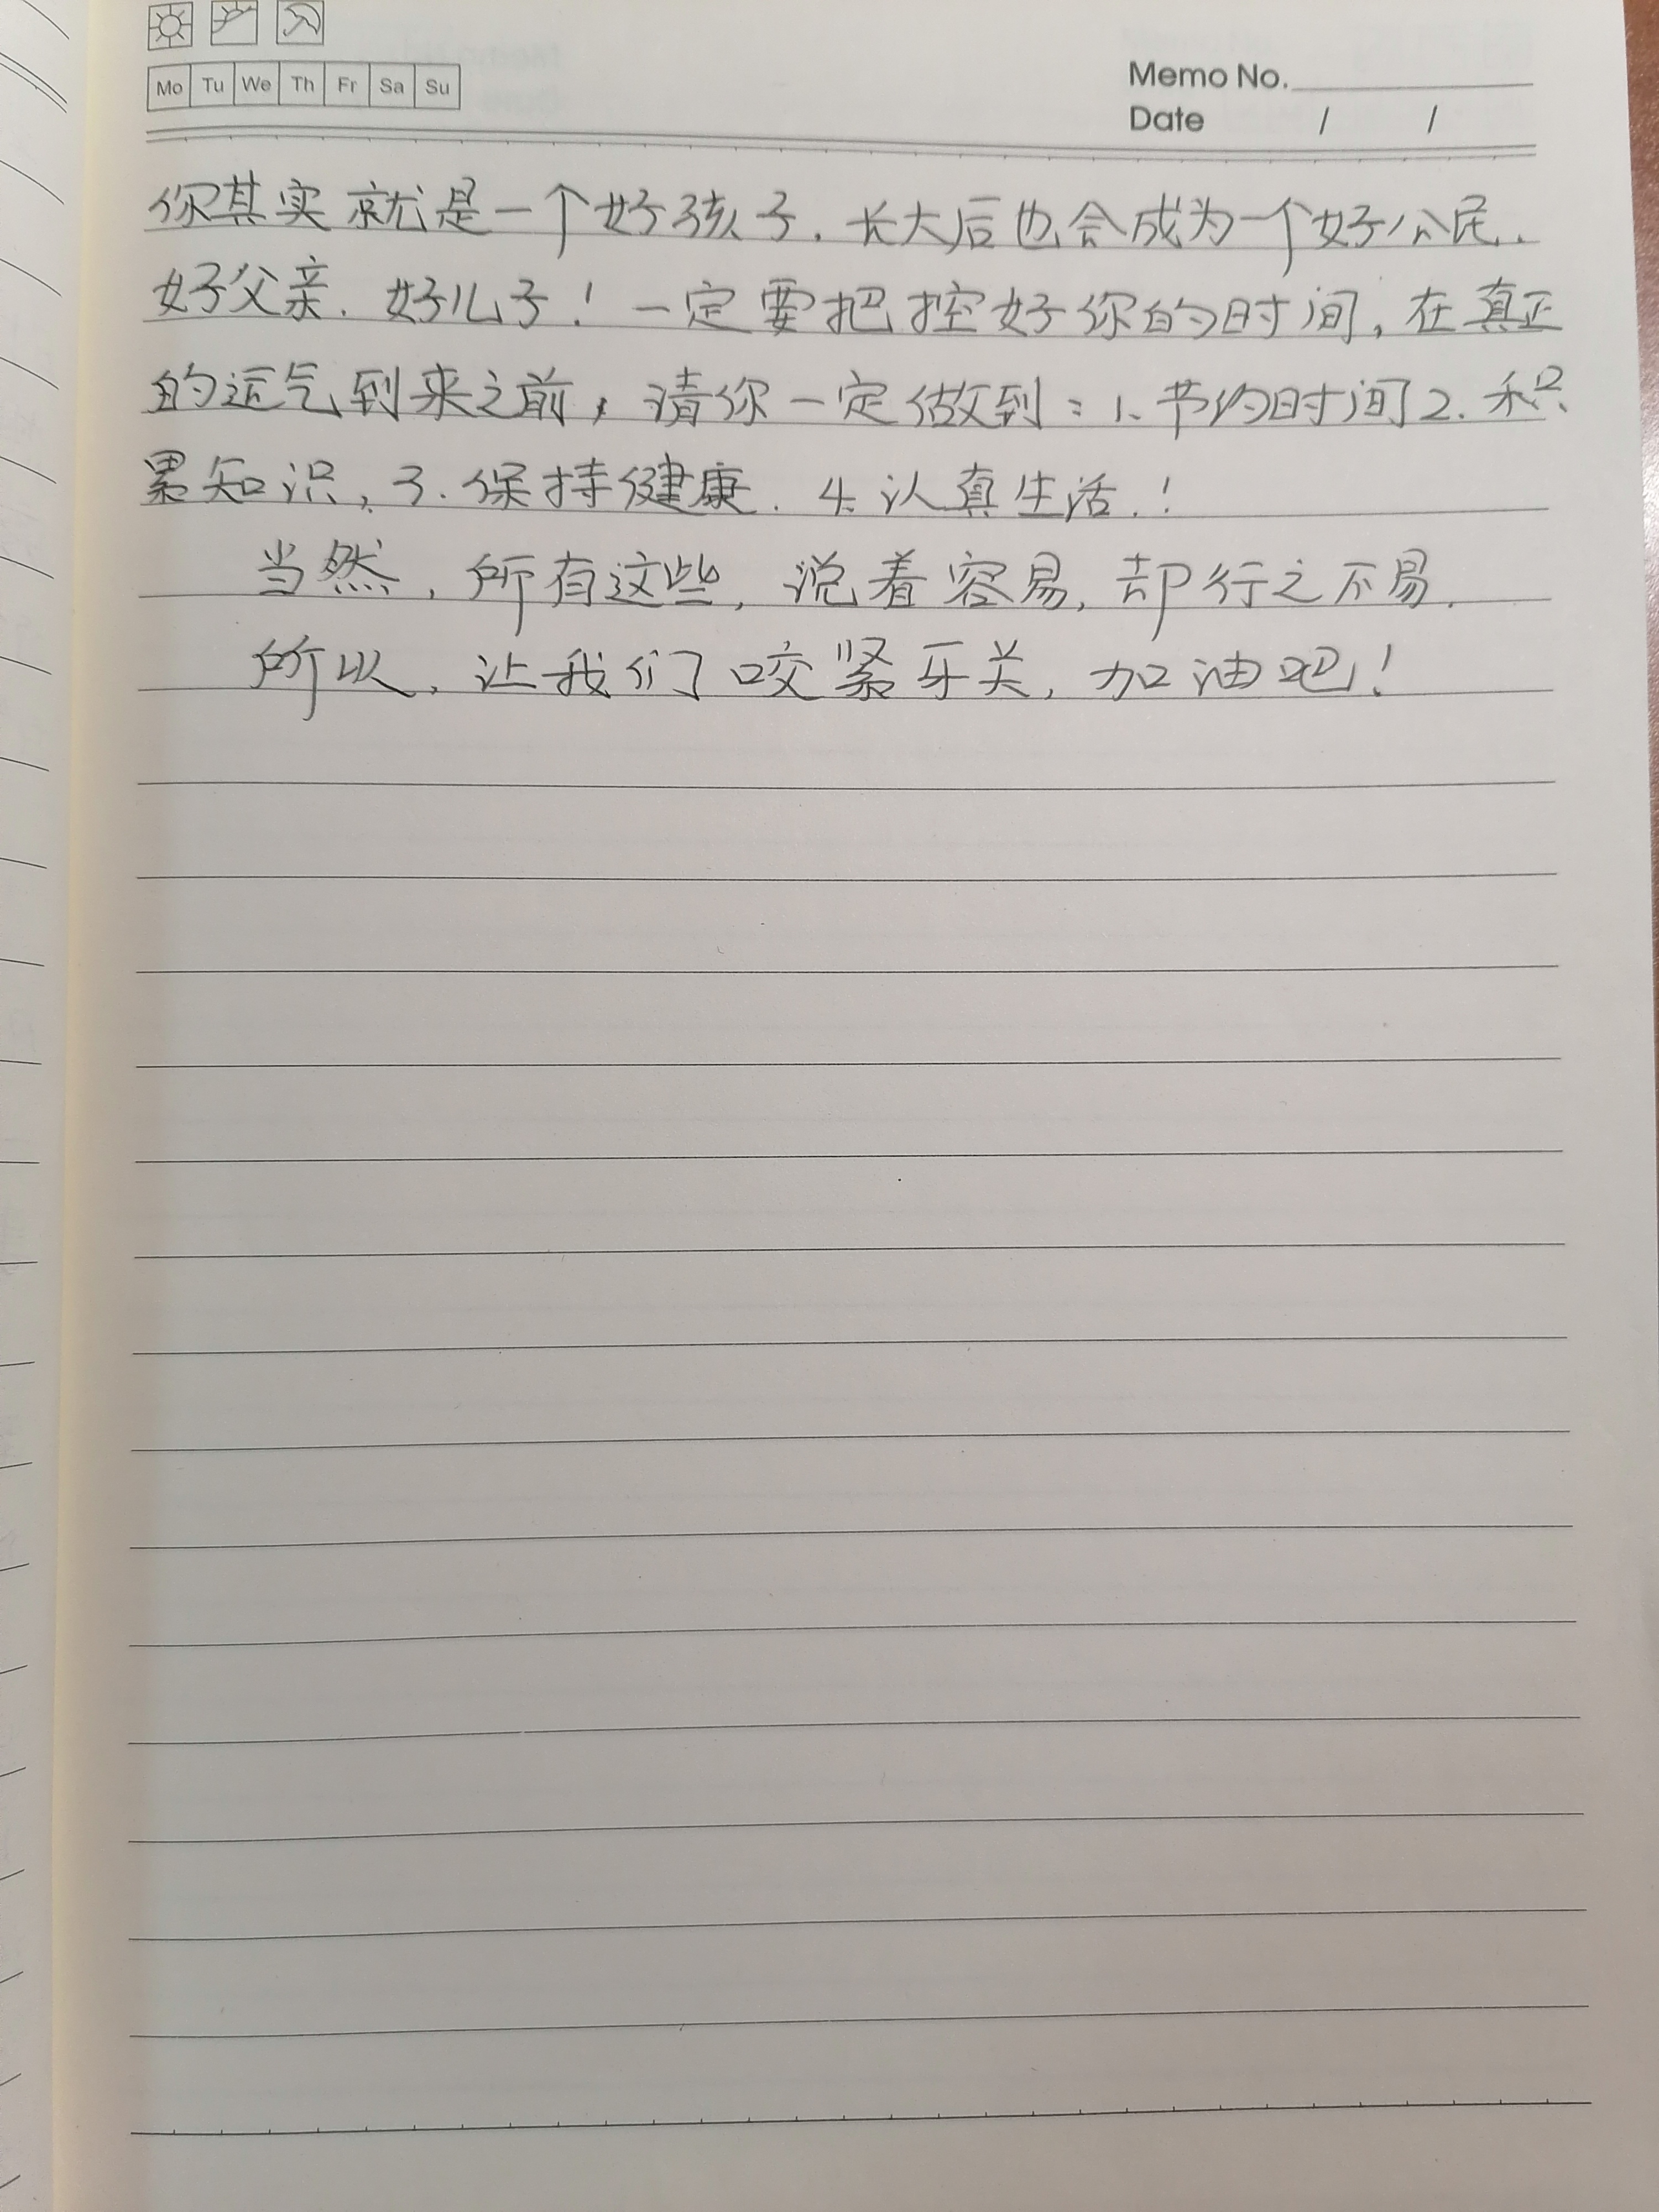 Mo Tu We Th Fr Sa Su
Memo No.
Date / /
你其实就是一个好孩子.长大后也会成为一个好公民、
好父亲.好儿子!一定要把控好你的时间,在真正
的运气到来之前,请你一定做到:1.节约时间2.积
累知识,3.保持健康.4.认真生活.!
当然,所有这些,说着容易,却行之不易.
所以,让我们咬紧牙关,加油吧!